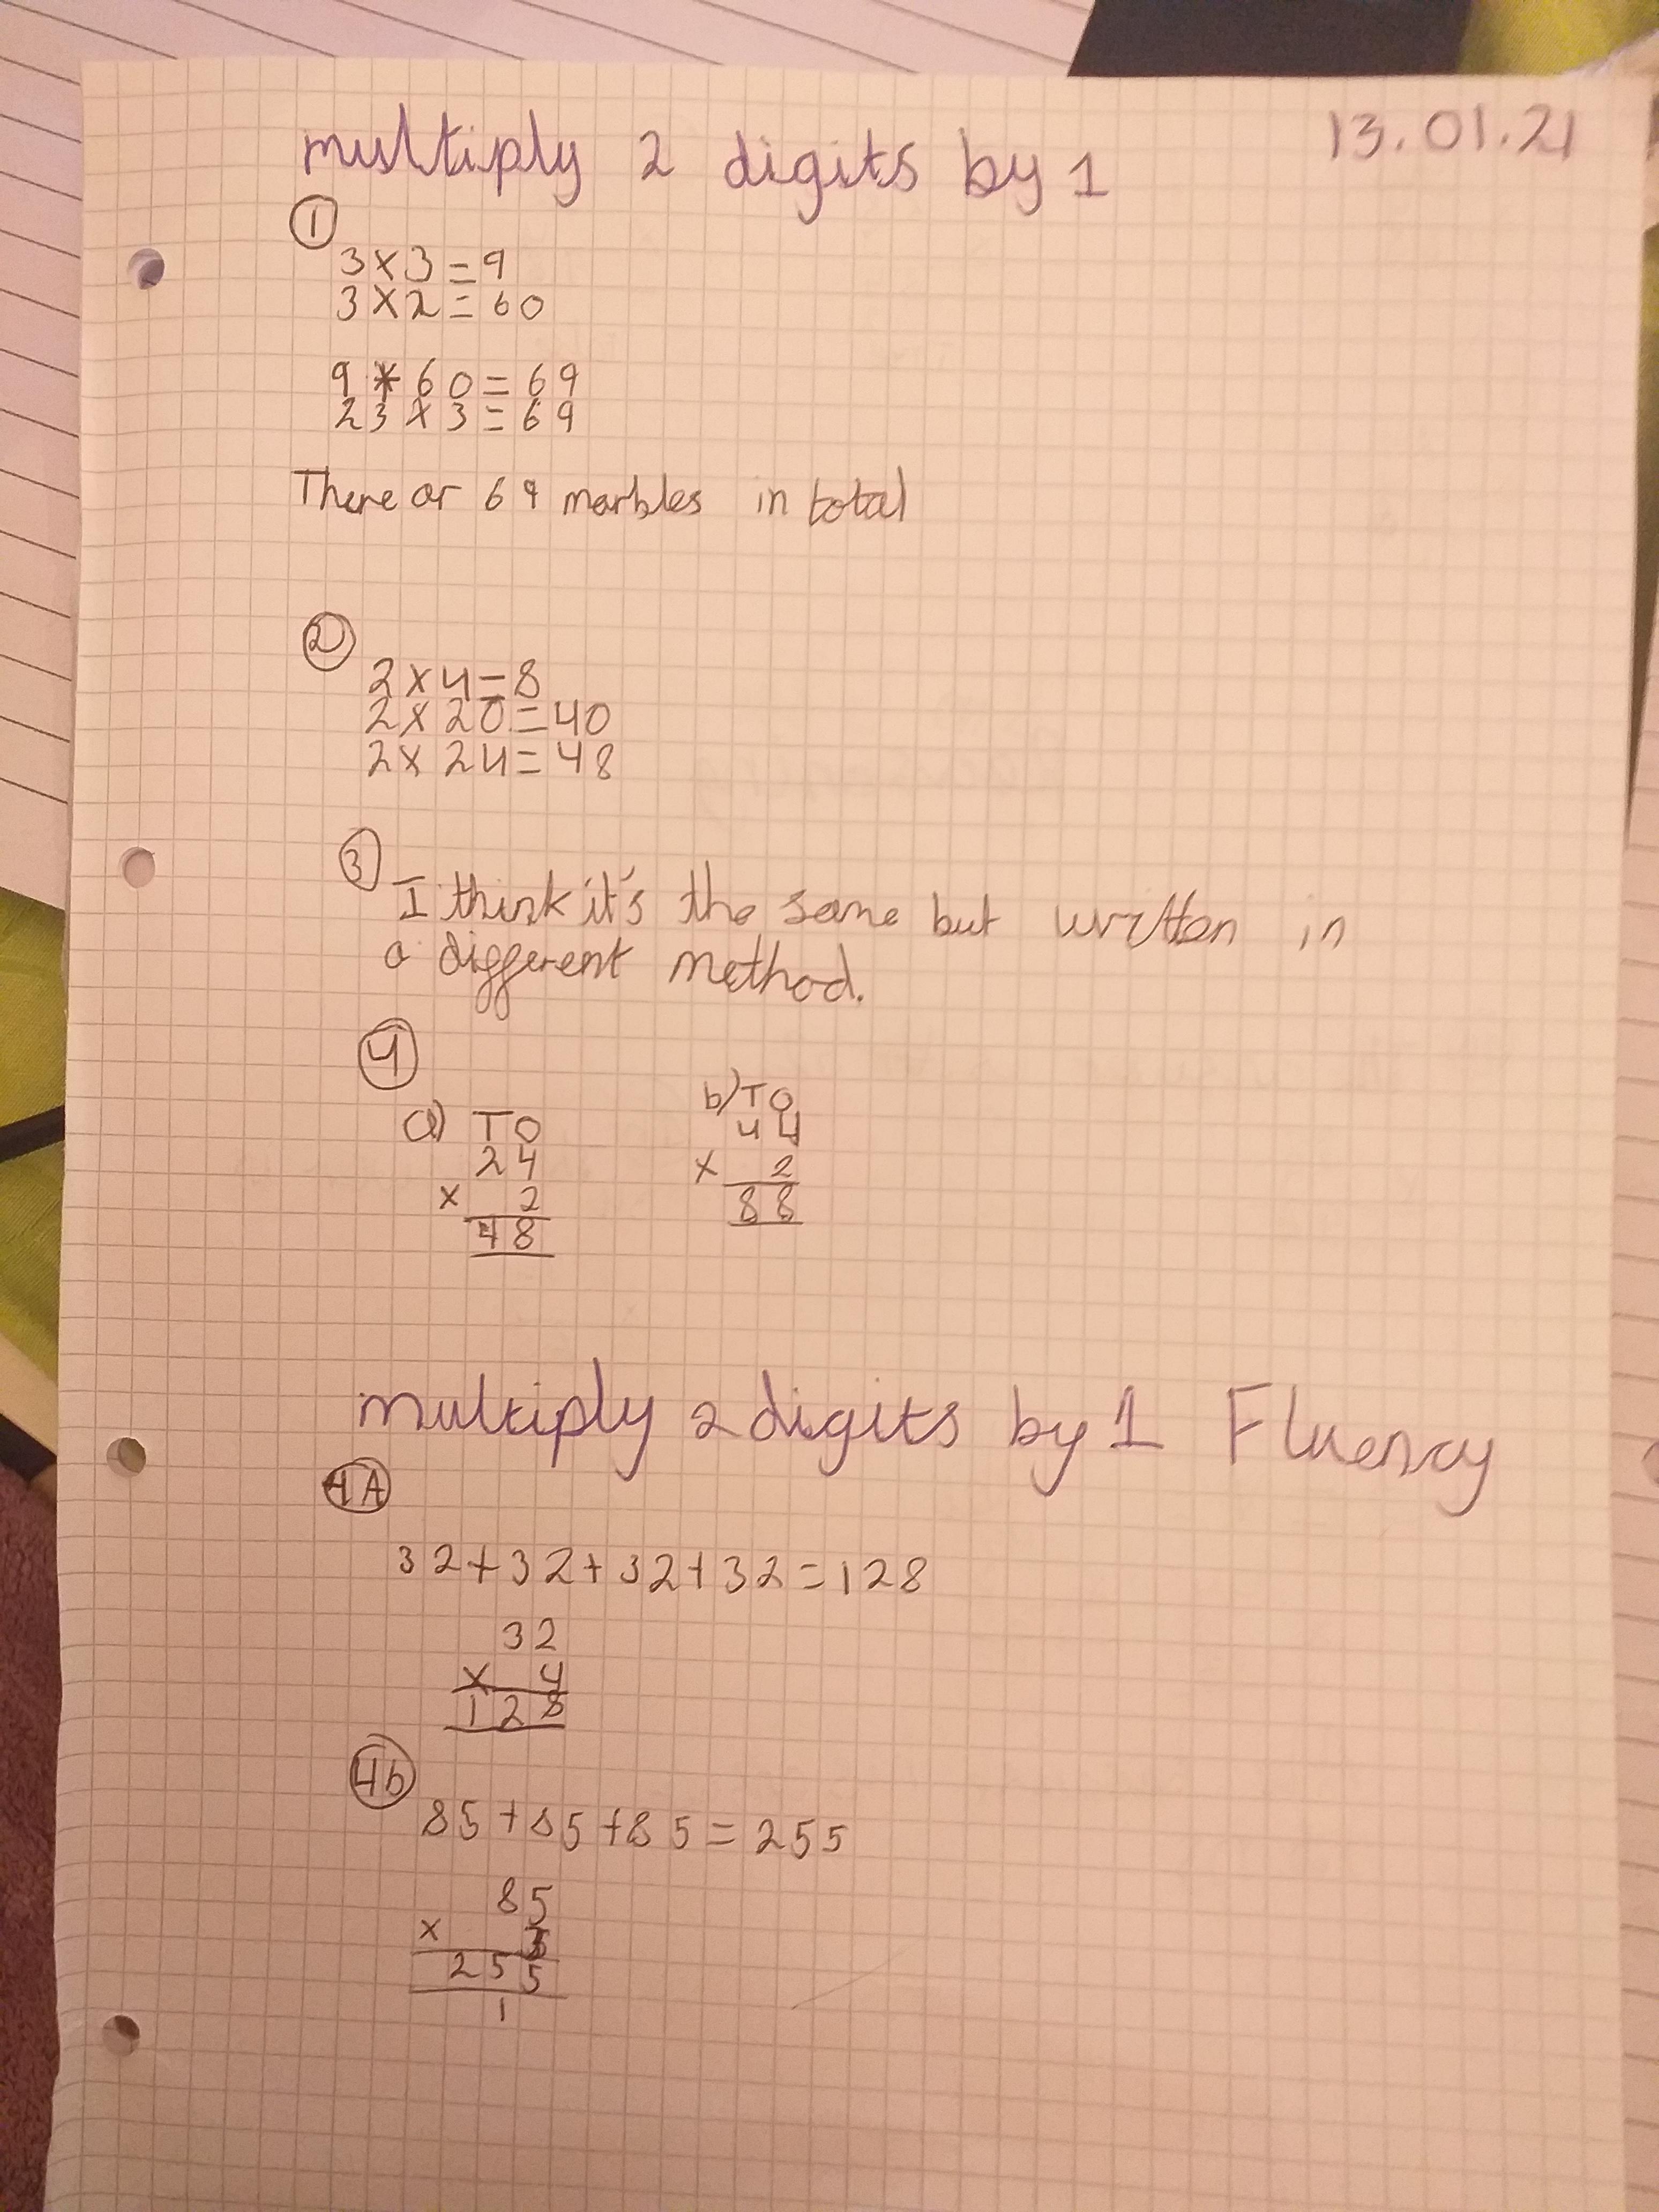 multiply 2 digits by 1
13.01.21
1
3×3=9
3×2=60
9+60=69
23×3=69
There ar 69 marbles in total
2
2×4=8
2×20=40
2×24=48
3
I think it's the same but written in
a different method.
4
a) TO
24
× 2
48
b) TO
44
× 2
88
multiply 2 digits by 1 Fluency
4A
32+32+32+32=128
32
× 4
128
4b
85+85+85=255
85
× 3
255
1